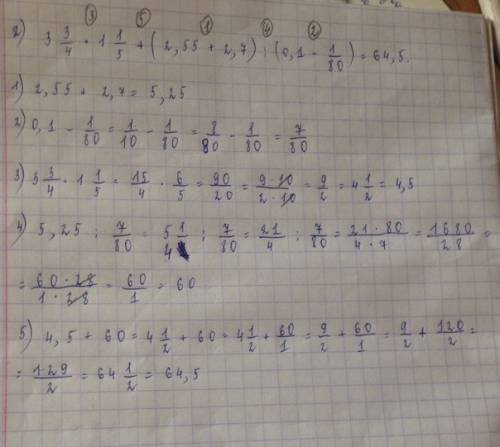 ③ ⑤ ① ④ ②
2) 3 3/4 · 1 1/5 + (2,55 + 2,7) : (0,1 - 1/80) = 64,5.
1) 2,55 + 2,7 = 5,25
2) 0,1 - 1/80 = 1/10 - 1/80 = 8/80 - 1/80 = 7/80
3) 3 3/4 · 1 1/5 = 15/4 · 6/5 = 90/20 = 9·10/2·10 = 9/2 = 4 1/2 = 4,5
4) 5,25 : 7/80 = 5 1/4 : 7/80 = 21/4 : 7/80 = 21·80/4·7 = 1680/28 =
= 60·28/1·28 = 60/1 = 60
5) 4,5 + 60 = 4 1/2 + 60 = 4 1/2 + 60/1 = 9/2 + 60/1 = 9/2 + 120/2 =
= 129/2 = 64 1/2 = 64,5